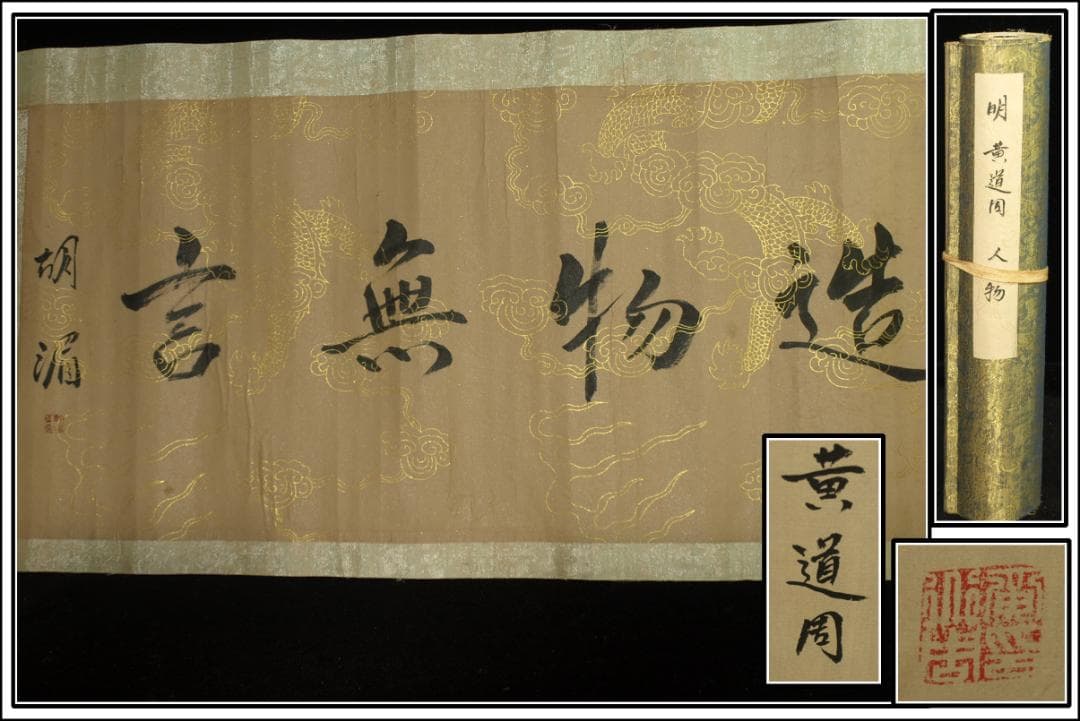 造物無言
胡湄
明 黄道周 人物
黄道周